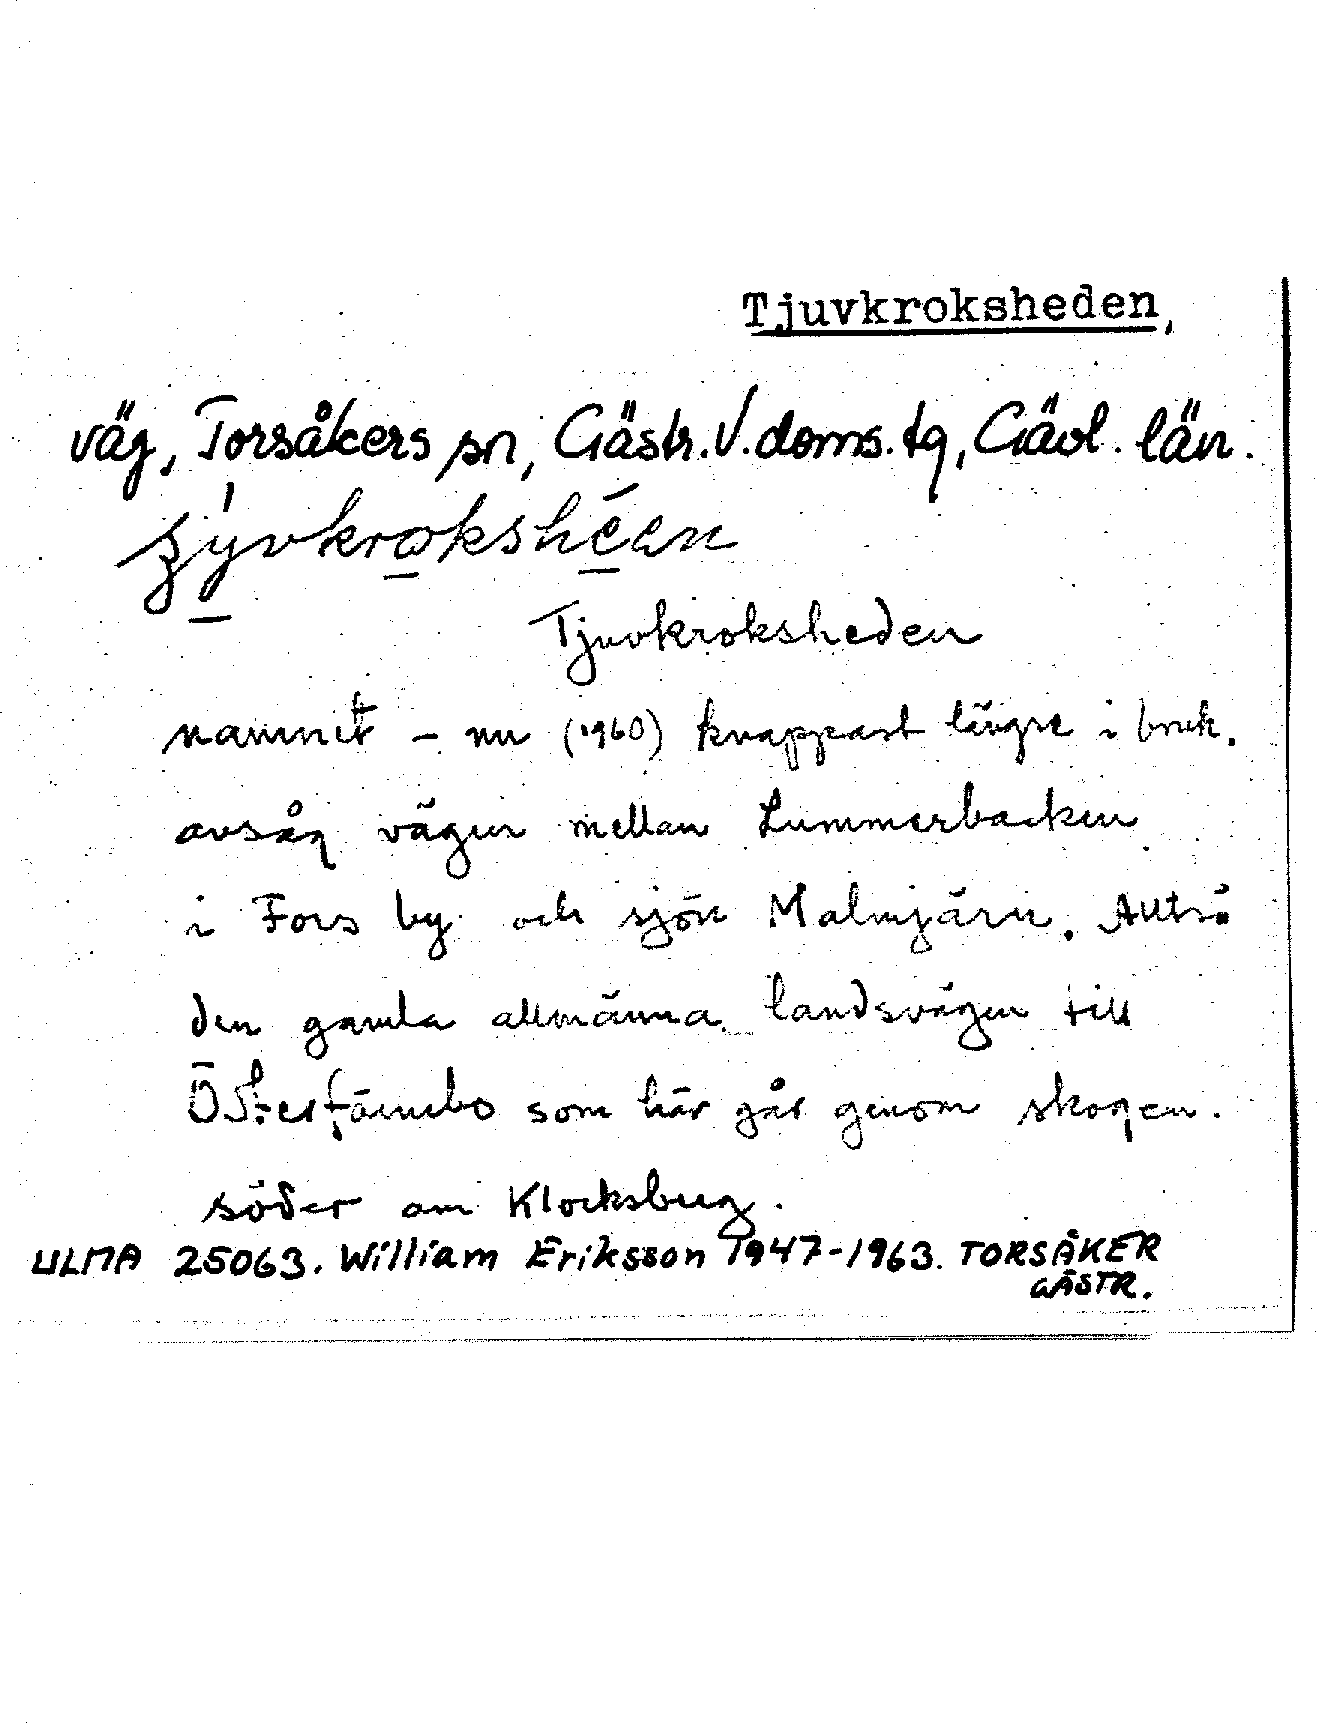 Tjuvkroksheden,
väg, Torsåkers sn, Gästr. V. doms. tg, Gävl. län.
Tjuvkroksheden
namnet – nu (1960) knappast längre i bruk.
avsåg vägen mellan Lummerbacken
i Fors by och sjön Malmjärn. Alltså
den gamla allmänna landsvägen till
Österfärnebo som här går genom skogen.
söder om Klocksberg.
ULMA 25063. William Eriksson 1947-1963. TORSÅKER
GÄSTR.